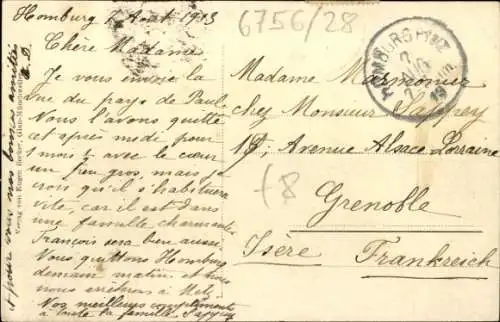 Homburg 1 Août 1913
Chère Madame
Je vous envoie la
vue du pays de Paule
Nous l'avons quitté
cet après midi pour
1 mois ; avec le cœur
un peu gros, mais je
crois qu'il s'habituera
vite, car il est dans
une famille charmante
François sera bien aussi.
Nous quittons Homburg
demain matin et nous
nous arrêtons à Metz
Nos meilleurs compliments
à toute la famille
et pour vous nos bonnes amitiés
Verlag von Eugen Becker,
6756/28
HOMBURG PFALZ
Madame Marmonier
chez Monsieur
18, Avenue Alsace Lorraine
+8
Grenoble
Isère Frankreich